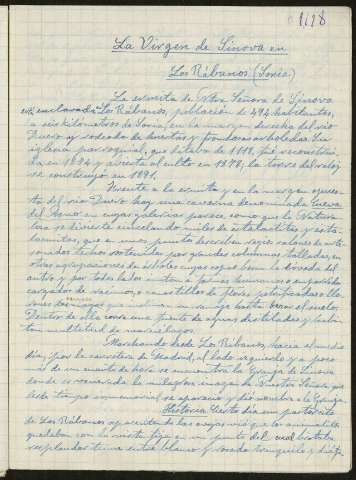 1118
La Virgen de Sinova en
Los Rábanos (Soria)
La ermita de Ntra Señora de Sinova
enclavada Los Rábanos, población de 494 habitantes,
a seis kilómetros de Soria, en la margen derecha del río
Duero y rodeada de huertas y frondosas arboledas. La
iglesia parroquial, que databa de 1111, fué reconstruí
da en 1894 y abierta al culto en 1898; la torre del reloj
se construyó en 1891.
Frente a la ermita y en la margen opues
ta del río Duero hay una caverna denominada Cueva
del Asno en cuyas galerías parece como que la Natura
leza se divierte cincelando miles de estalactitas y esta
lagmitas, que en unos puntos describen regios salones de arte
sonados techos sostenidos por grandes columnas talladas, en
otros agrupaciones de árboles cuyas copas besan la bóveda del
antro y por todos lados imitan a formas humanas o un parrón
cargado de racimos, o un castillo de flores petrificadas o llo
rones
Dentro de ella corre una fuente de aguas destiladas y habi
tan multitud de murciélagos.
Marchando desde Los Rábanos, hacia el medio
día, por la carretera de Madrid, al lado izquierdo y a poco
más de un cuarto de hora se encuentra la Granja de Sinova
donde es venerada la milagrosa imagen de Nuestra Señora, que
desde tiempo inmemorial se apareció y dió nombre a la Granja.
Historia. Cierto día un pastorcito
de Los Rábanos apacentaba las ovejas vió que los animalitos
quedaban con la vista fija en un punto del cual brotaba
resplandor tenue entre blanco y rosado tranquilo y diáfa